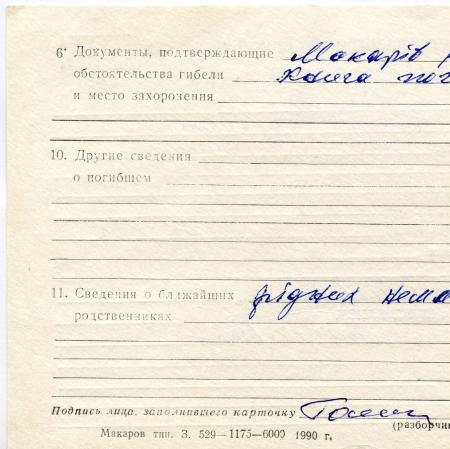 6· Документы, подтверждающие Макарів
обстоятельства гибели Книга
и место захоронения
10. Другие сведения
о погибшем
11. Сведения о ближайших рідних нема
родственниках
Подпись лица, заполнившего карточку
(разборчи
Макаров тип. З. 529—1175—6000 1990 г.